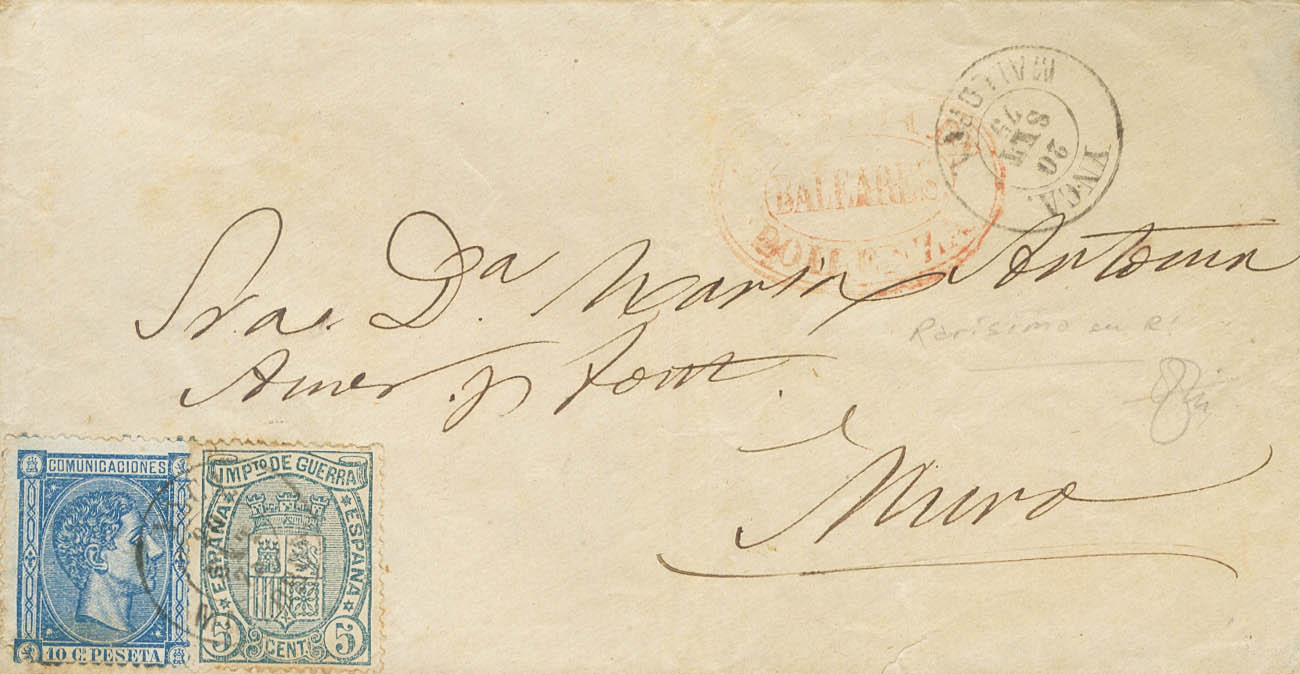 MALLORCA
20
SET
75
YNCA.
BALEARES
POLLENZA
Sra. Da. Maria Antonia
Amer y Font.
Rarísimo en R!
Muro
COMUNICACIONES
10 C. PESETA
IMPTO DE GUERRA
ESPAÑA
ESPAÑA
5 CENT. 5